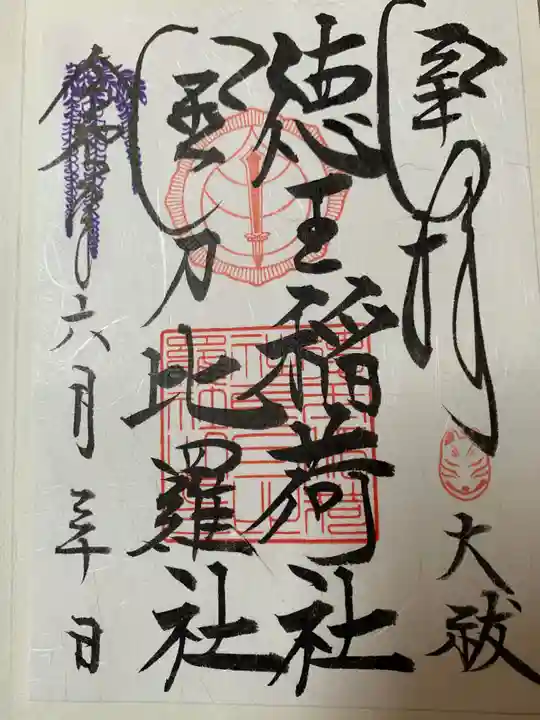 奉拝
大祓
徳王稲荷社
金刀比羅社
令和 年六月三十日